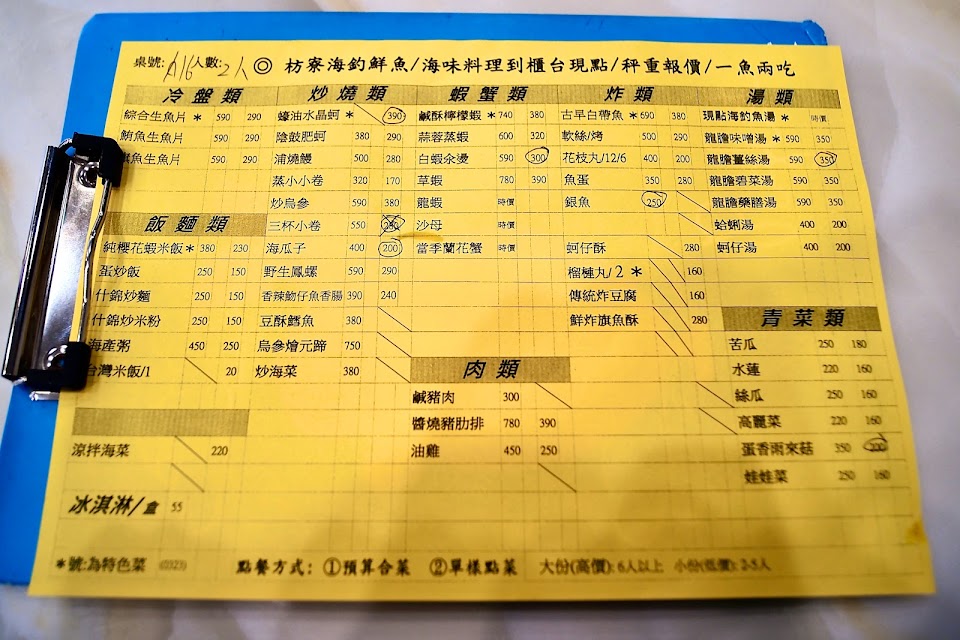 桌號: A16 人數: 2人 ◎ 枋寮海釣鮮魚/海味料理到櫃台現點/秤重報價/一魚兩吃
冷盤類
綜合生魚片 * 590 290
鮪魚生魚片 590 290
旗魚生魚片 590 290
飯麵類
純櫻花蝦米飯 * 380 230
蛋炒飯 250 150
什錦炒麵 250 150
什錦炒米粉 250 150
海產粥 450 250
台灣米飯/1 20
涼拌海菜 220
冰淇淋/盒 55
炒燒類
蠔油水晶蚵 * 390
陰鼓肥蚵 380 290
浦燒鰻 500 280
蒸小小卷 320 170
炒烏參 590 380
三杯小卷 550 280
海瓜子 400 200
野生鳳螺 590 290
香辣魩仔魚香腸 390 240
豆酥鱈魚 380
烏參燴元蹄 750
炒海菜 380
蝦蟹類
鹹酥檸檬蝦 * 740 380
蒜蓉蒸蝦 600 320
白蝦汆燙 590 300
草蝦 780 390
龍蝦 時價
沙母 時價
當季蘭花蟹 時價
肉類
鹹豬肉 300
醬燒豬肋排 780 390
油雞 450 250
炸類
古早白帶魚 * 690 380
軟絲/烤 500 290
花枝丸/12/6 400 200
魚蛋 350 280
銀魚 250
蚵仔酥 280
榴槤丸/2 * 160
傳統炸豆腐 160
鮮炸旗魚酥 280
湯類
現點海釣魚湯 * 時價
龍膽味噌湯 * 590 350
龍膽薑絲湯 590 350
龍膽碧菜湯 590 350
龍膽藥膳湯 590 350
蛤蜊湯 400 200
蚵仔湯 400 200
青菜類
苦瓜 250 180
水蓮 220 160
絲瓜 250 160
高麗菜 220 160
蛋香雨來菇 350 200
娃娃菜 250 160
*號:為特色菜 (0323) 點餐方式: ①預算合菜 ②單樣點菜 大份(高價): 6人以上 小份(低價): 2-5人